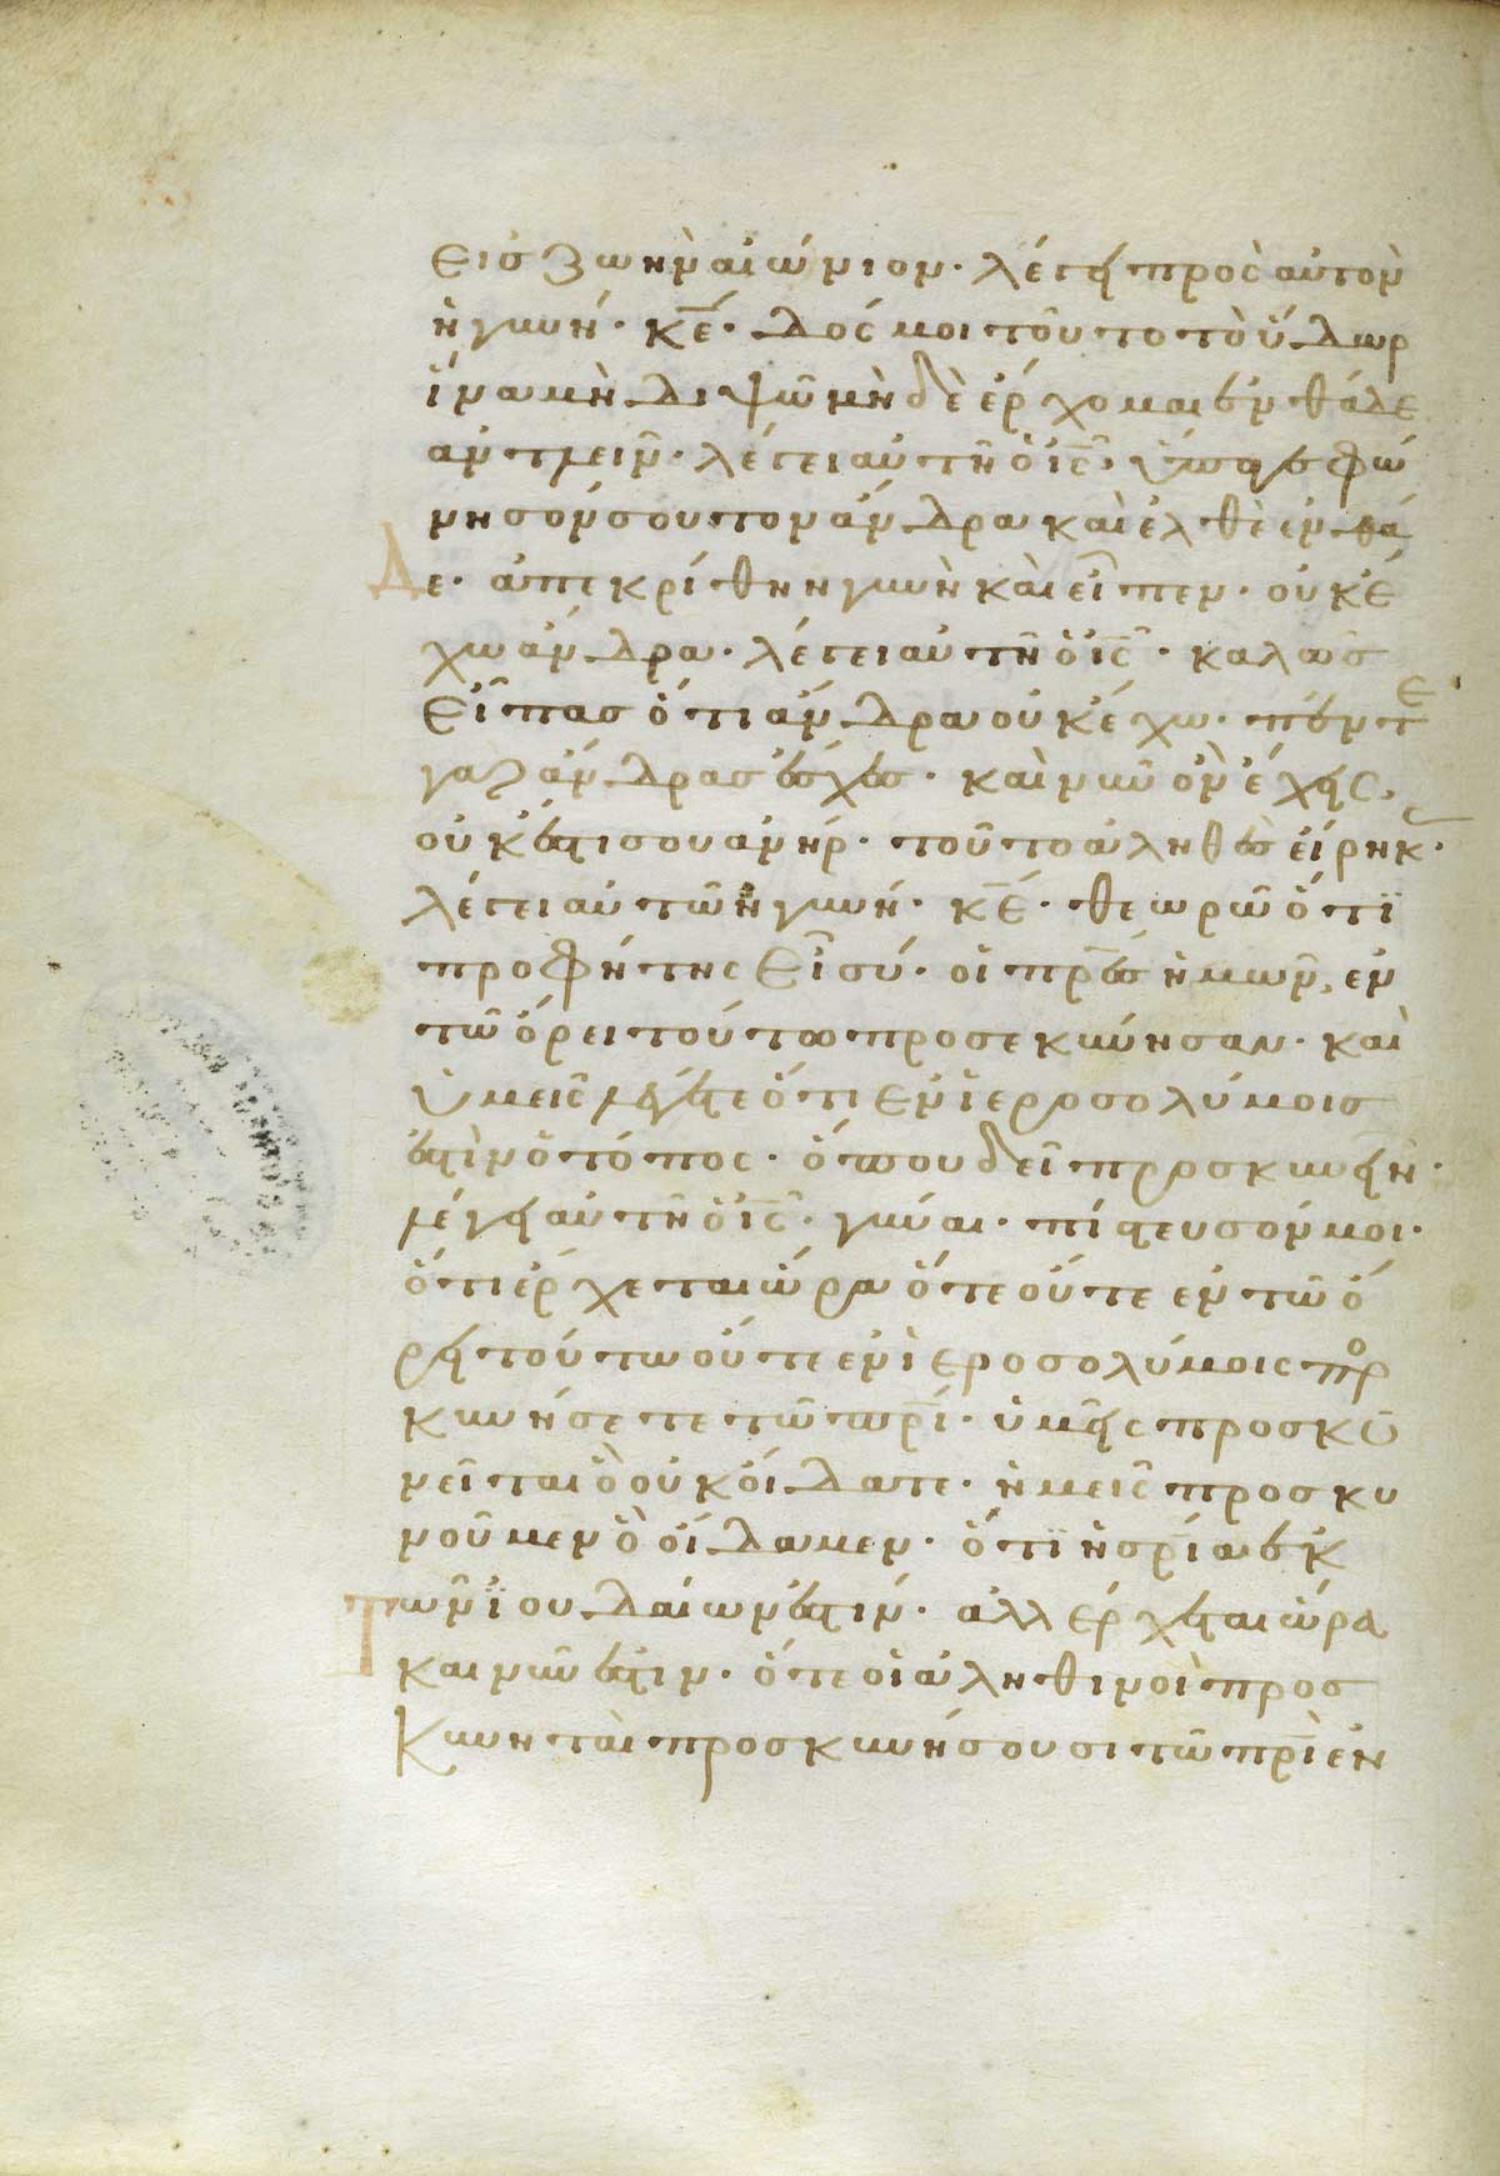 εισ ζωὴν αἰώνιον· λέγει πρὸς αὐτὸν
ἡ γυνή· κ̅ε̅· δός μοι τοῦτο τὸ ὕδωρ
ἵνα μὴ διψῶ μὴ δὲ ἔρχομαι ἐνθάδε
ἀντλεῖν· λέγει αὐτῆ ὁ ι̅ς̅, ὕπαγε φώ
νησόν σου τὸν ἄνδρα καὶ ἐλθὲ ἐνθά
δε· ἀπεκρίθη ἡ γυνὴ καὶ εἶπεν· οὐκ ἔ
χω ἄνδρα· λέγει αὐτῆ ὁ ι̅ς̅· καλῶσ
εἶπασ ὅτι ἄνδρα οὐκ ἔχω· πέντε
γὰρ ἄνδρασ ἔσχεσ· καὶ νῦν ὃν ἔχεις,
οὐκ ἔστι σου ἀνήρ· τοῦτο ἀληθὲσ εἴρηκ·
λέγει αὐτῶ ἡ γυνή· κ̅ε̅· θεωρῶ ὅτϊ
προφήτης εἶ σύ· οἱ π̅ρ̅ε̅σ̅ ἡμῶν, ἐν
τῶ ὄρει τούτω προσεκύνησαν· καὶ
ὑμεῖς λέγετε ὅτι ἐν ἱεροσολύμοισ
ἐστὶν ὁ τόπος· ὅπου δεῖ προσκυνεῖν·
λέγει αὐτῆ ὁ ι̅ς̅· γύναι· πίστευσόν μοι·
ὅτι ἔρχεται ὥρα ὅτε οὔτε ἐν τῶ ὄ
ρει τούτω οὔτε ἐν ἱεροσολύμοις προ
κυνήσετε τῶ π̅ρ̅ι̅· ὑμεῖς προσκυ
νεῖται ὃ οὐκ οἴδατε· ἡμεῖς προσκυ
νοῦμεν ὃ οἴδαμεν· ὅτϊ ἡ σ̅ρ̅ι̅α ἐκ
τῶν ϊουδαίων ἐστίν· ἀλλ ἔρχεται ὥρα
καὶ νῦν ἐστιν· ὅτε οἱ ἀληθινοὶ προσ
κυνηταὶ προσκυνήσουσι τῶ π̅ρ̅ι̅ ἐν